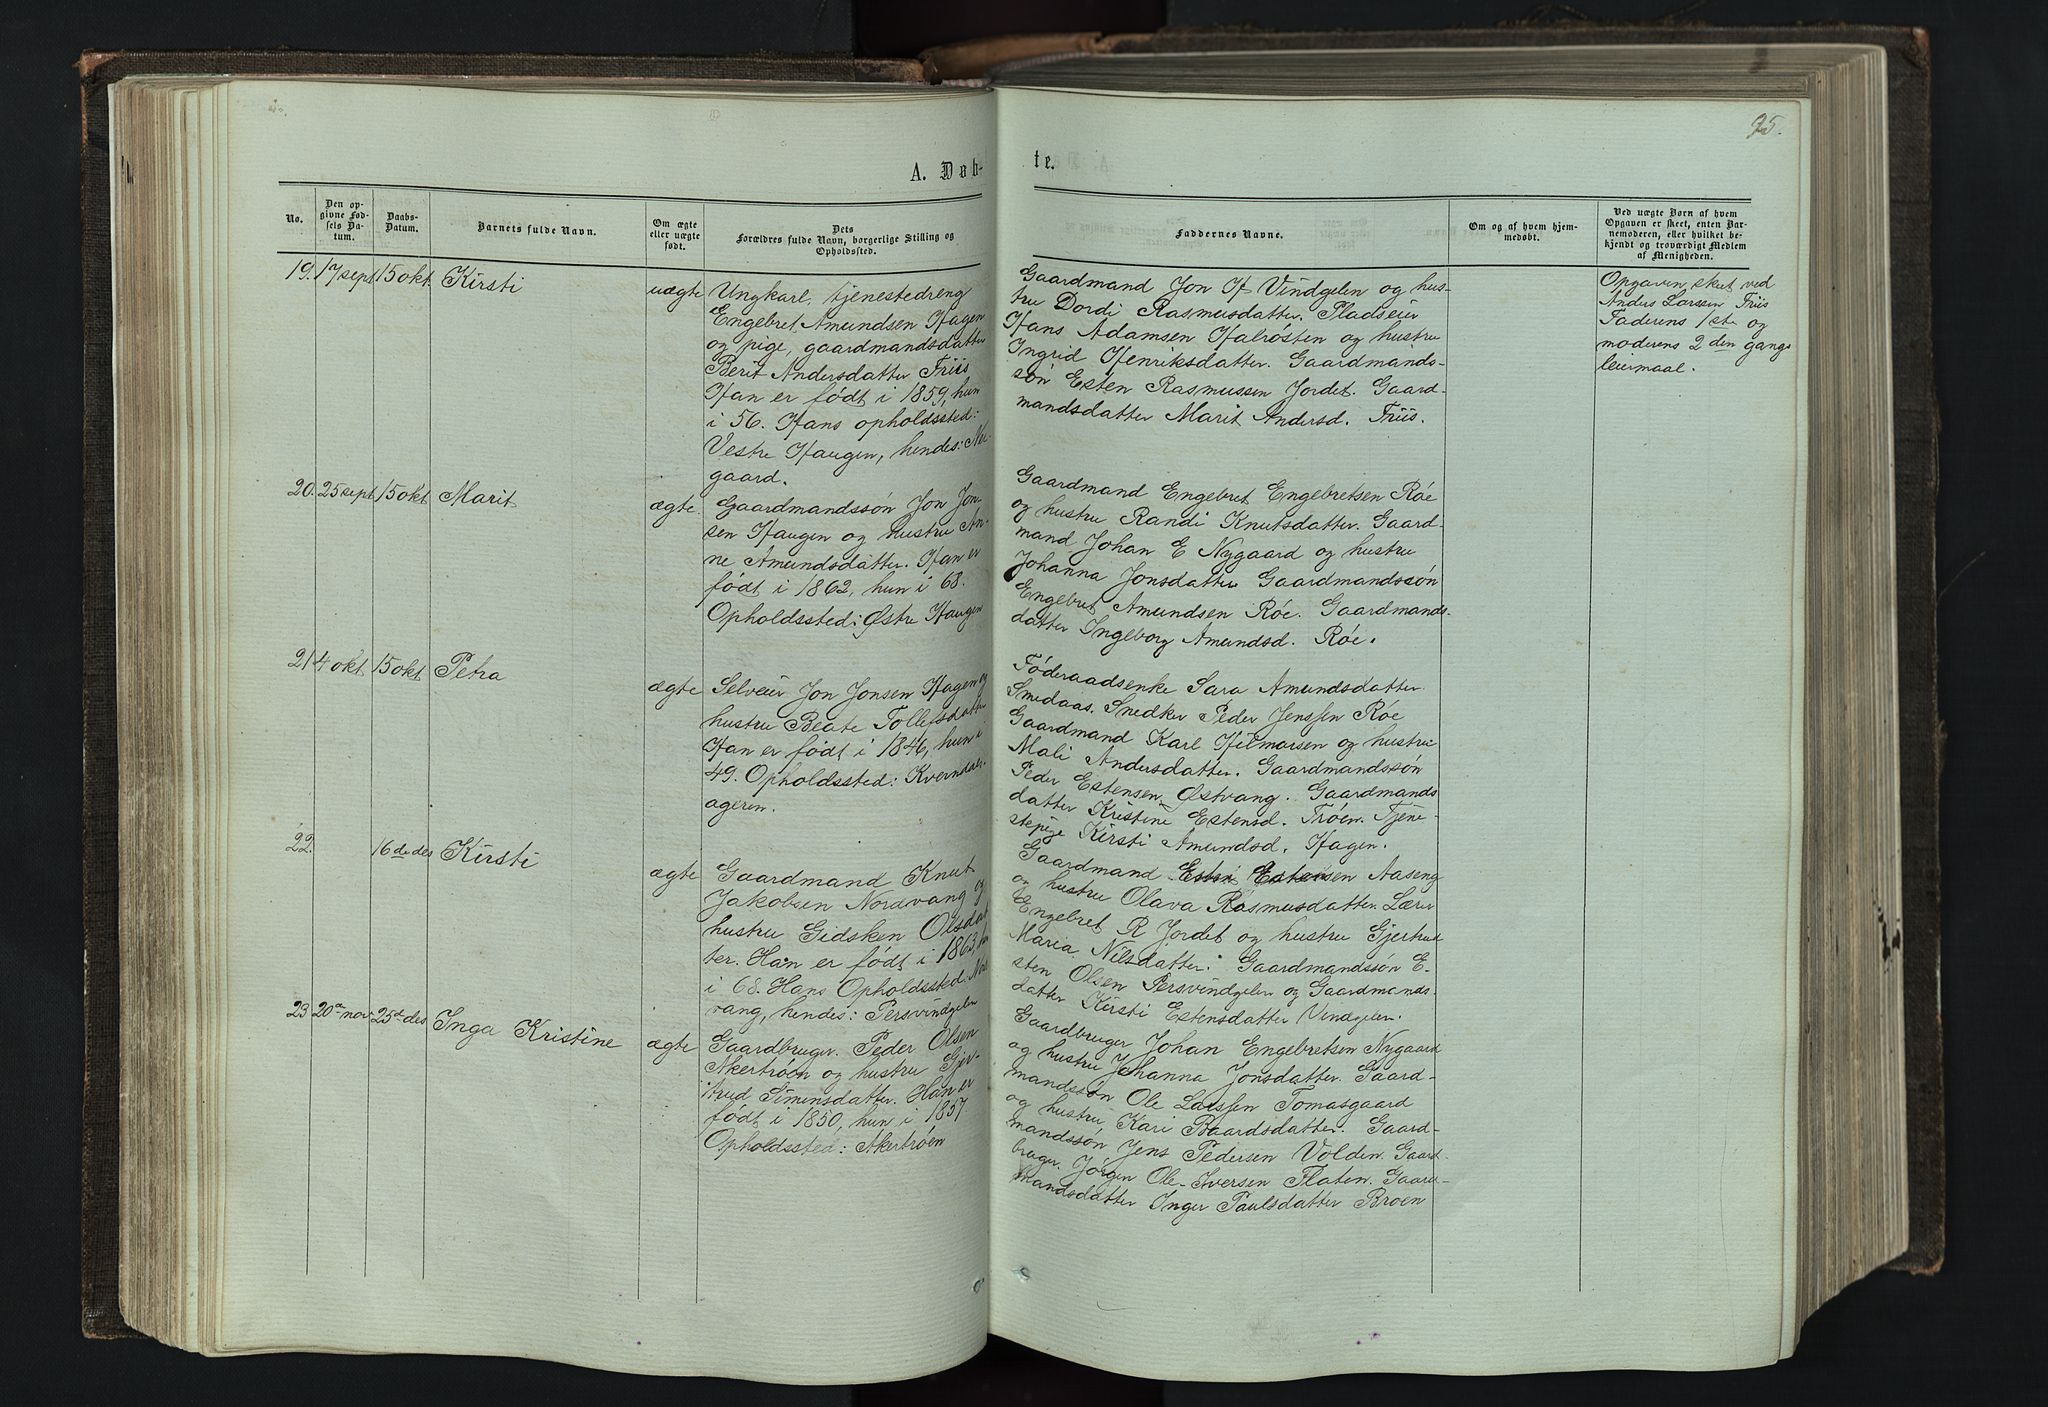 95.
A. Døb-
te.
No.
Den op-
givne Fød-
sels Da-
tum.
Daabs-
Datum.
Barnets fulde Navn.
Om ægte
eller uægte
født.
Dets
Forældres fulde Navn, borgerlige Stilling og
Opholdssted.
Faddernes Navne.
Om og af hvem hjem-
medøbt.
Ved uægte Børn af hvem
Opgaven er skeet, enten Bar-
nemoderen, eller hvilket be-
kjendt og troværdigt Medlem
af Menigheden.
19. 17 sept 15 okt Kirsti
uægte
Ungkarl, tjenestedreng
Engebret Amundsen Hagen
og pige, gaardmandsdatter
Berit Andersdatter Friis
Han er født i 1859, hun
i 56. Hans opholdssted:
Vestre Haugen, hendes: Ne-
gaard.
Gaardmand Jon H Vindgelen og hus-
tru Dordi Rasmusdatter. Pladseier
Hans Adamsen Halrösten og hustru
Ingrid Henriksdatter. Gaardmands-
sön Esten Rasmussen Jordet. Gaard-
mandsdatter Marit Andersd. Friis.
Opgaven skeet ved
Anders Larssen Friis
Faderens 1ste og
moderens 2den gangs
leiermaal.
20. 25 sept 15 okt Marit
ægte
Gaardmandssön Jon Jon-
sen Haugen og hustru An-
ne Amundsdatter. Han er
født i 1862, hun i 68.
Opholdssted: Østre Haugen
Gaardmand Engebret Engebretsen Röe
og hustru Randi Knutsdatter. Gaard-
mand Johan E Nygaard og hustru
Johanna Jonsdatter Gaardmandssön
Engebret Amundsen Röe. Gaardmands-
datter Ingeborg Amundsd. Röe.
21 4 okt 15 okt Petra
ægte
Selveier Jon Jonsen Hagen og
hustru Beate Tollefsdatter
Han er født i 1846, hun i
49. Opholdssted: Kverndal-
ageren.
Föderaadsenke Sara Amundsdatter
Smedaas. Snedker Peder Jenssen Röe
Gaardmand Karl Hilmarsen og hustru
Mali Andersdatter. Gaardmandssön
Peder Estensen Østvang. Gaardmands
datter Kristine Estensd. Tröen. Tjene-
stepige Kirsti Amundsd. Hagen.
22. 16de des Kirsti
ægte
Gaardmand Knut
Jakobsen Nordvang og
hustru Gidsken Olsdat
ter. Han er født i 1863, hun
i 68. Hans Opholdssted: Nord
vang, hendes: Persvindgelen
Gaardmand Esten Estensen Aaseng
og hustru Olava Rasmusdatter. Lærer
Engebret R Jordet og hustru Gjertrud
Maria Nilsdatter. Gaardmandssön E-
sten Olsen Persvindgelen og Gaardmands-
datter Kirsti Estensdatter Vindgelen.
23 20de nov 25de des Inga Kristine
ægte
Gaardbruger Peder Olsen
Akertröen og hustru Gjer-
trud Simensdatter. Han er
født i 1850, hun i 1857.
Opholdssted: Akertröen
Gaardbruger Johan Engebretsen Nygaard
og hustru Johanna Jonsdatter. Gaard-
mandssön Ole Larssen Tomasgaard
og hustru Kari Baardsdatter. Gaard-
mandssön Jens Pedersen Volden. Gaard-
bruger Jörgen Ole-Iversen Flaten. Gaard-
mandsdatter Inger Paulsdatter Broen